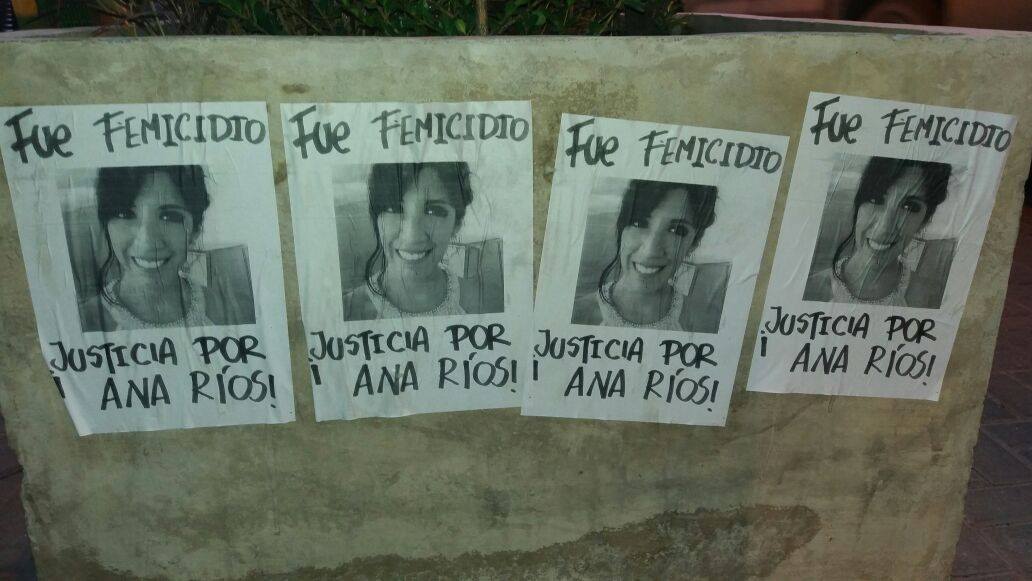 FUE FEMICIDIO
¡JUSTICIA POR
ANA RÍOS!
FUE FEMICIDIO
¡JUSTICIA POR
ANA RÍOS!
FUE FEMICIDIO
¡JUSTICIA POR
ANA RÍOS!
FUE FEMICIDIO
¡JUSTICIA POR
ANA RÍOS!